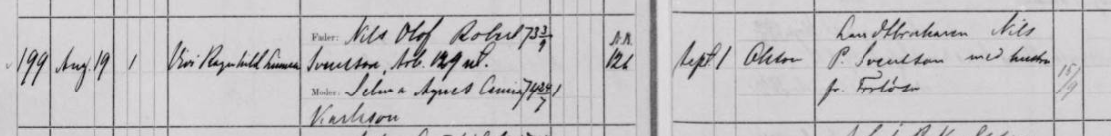 199 Aug. 19 1 Vivi Ragnhild Linnea
Fader: Nils Olof Robert 73 3/9
Svensson, Arb. 129
Moder: Selma Agnes 74 24/7
Karlsson
N.N.
126
Sept 1 Olsson
Landtbrukaren Nils
P. Svensson med hustru
fr.
15/9